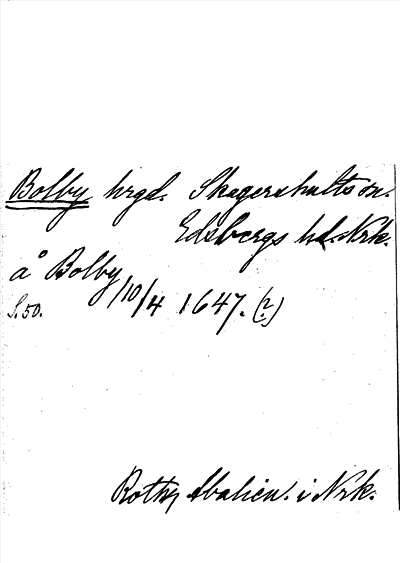 Bolby hrgd. Skagershults sn.
Edsbergs hd. Nrk.
å Bolby 10/4 1647. (?)
S. 50.
Roths Abalien. i Nrk.